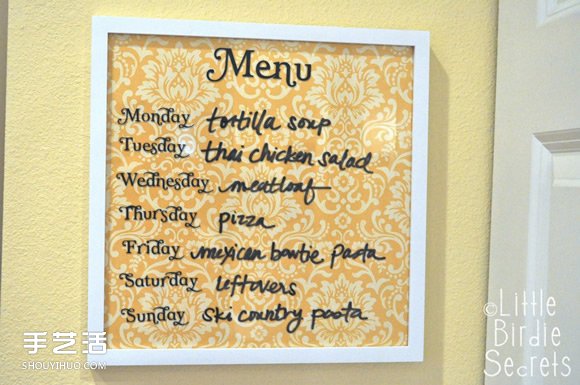 Menu
Monday tortilla soup
Tuesday thai chicken salad
Wednesday meatloaf
Thursday pizza
Friday mexican bowtie pasta
Saturday leftovers
Sunday Ski country pasta
©Little
Birdie
Secrets
手艺活
SHOUYIHUO.COM